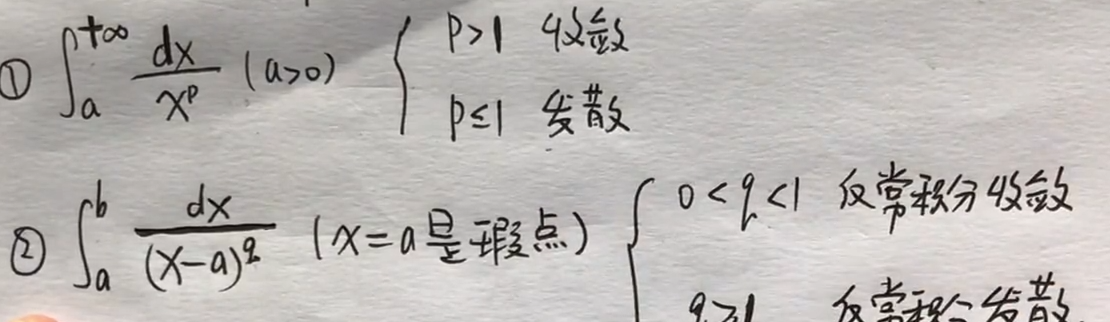 ① ∫_a^{+∞} dx/x^p (a>0) { p>1 收敛
p≤1 发散
② ∫_a^b dx/(x-a)^q (x=a是瑕点) { 0<q<1 反常积分收敛
q≥1 反常积分发散